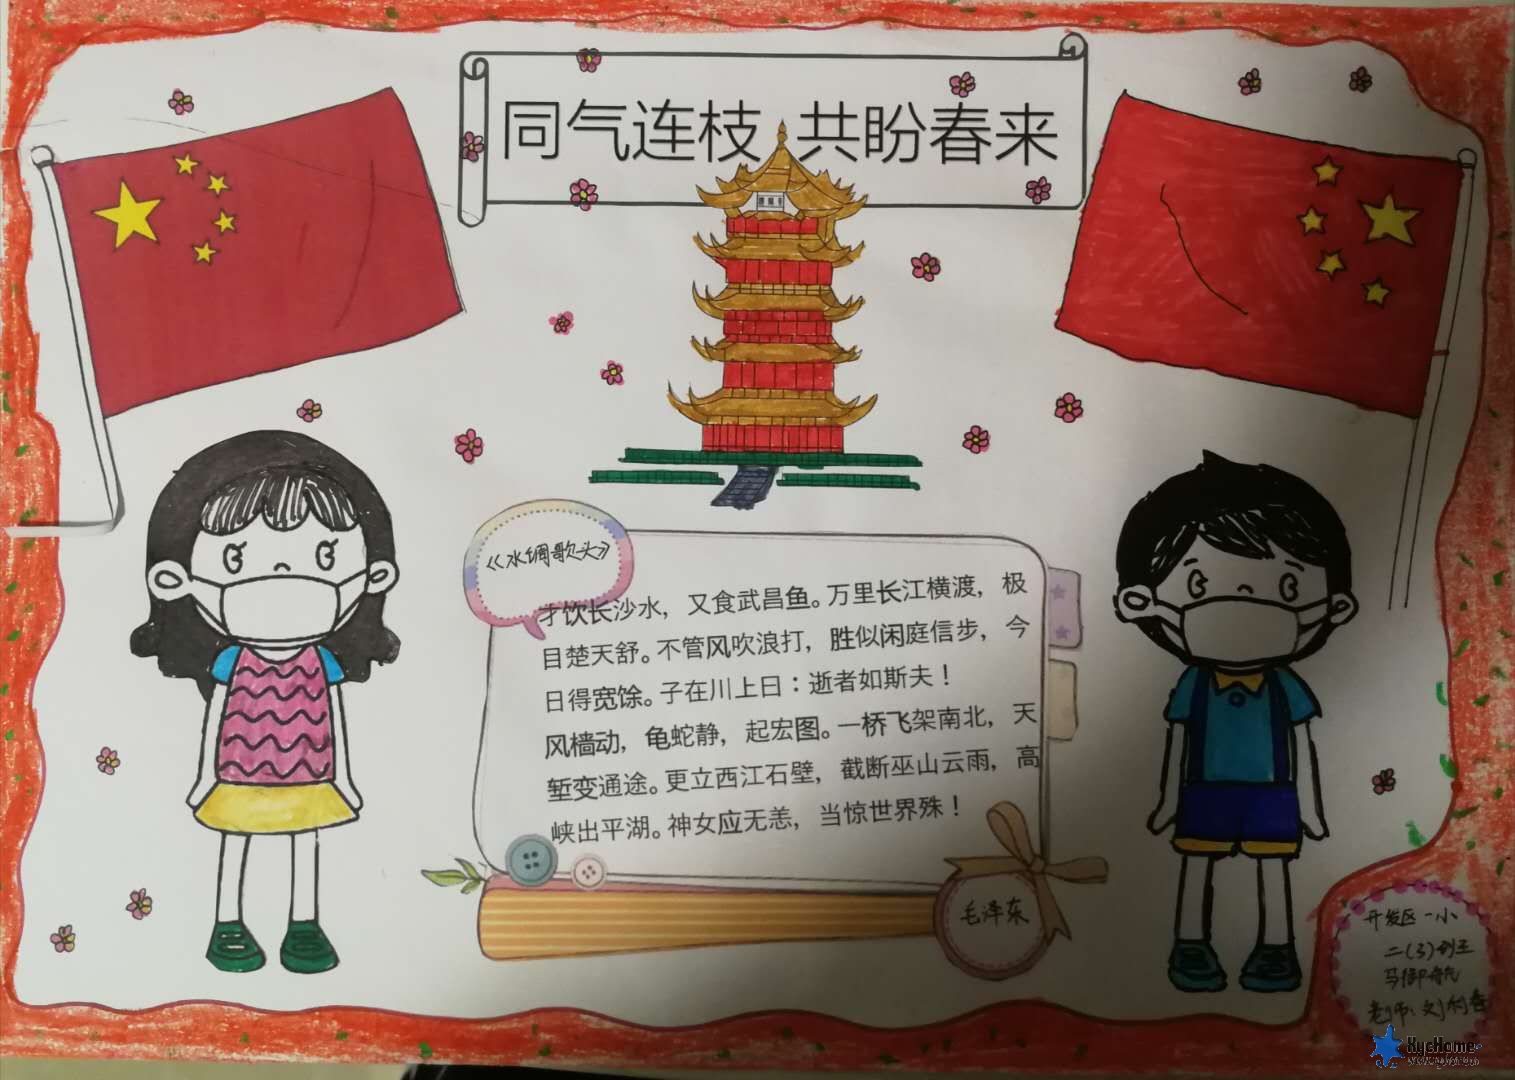 同气连枝 共盼春来
《水调歌头》
才饮长沙水，又食武昌鱼。万里长江横渡，极
目楚天舒。不管风吹浪打，胜似闲庭信步，今
日得宽馀。子在川上曰：逝者如斯夫！
风樯动，龟蛇静，起宏图。一桥飞架南北，天
堑变通途。更立西江石壁，截断巫山云雨，高
峡出平湖。神女应无恙，当惊世界殊！
毛泽东
开发区一小
二(3)
马御航
老师:刘利春
HycHome